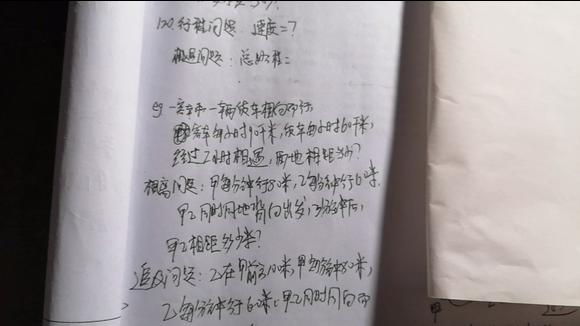 行程问题 速度=?
相遇问题: 总路程=
例 一客车和一辆货车相向而行
客车每小时90千米,货车每小时60千米,
经过 小时相遇,两地相距多少?
相离问题:甲每分钟行80米,乙每分钟行60米,
甲乙同时同地背向出发,3分钟后,
甲乙相距多少米?
追及问题:乙在甲前 米,甲每分钟80米,
乙每分钟行60米,甲乙同时同向而
甲